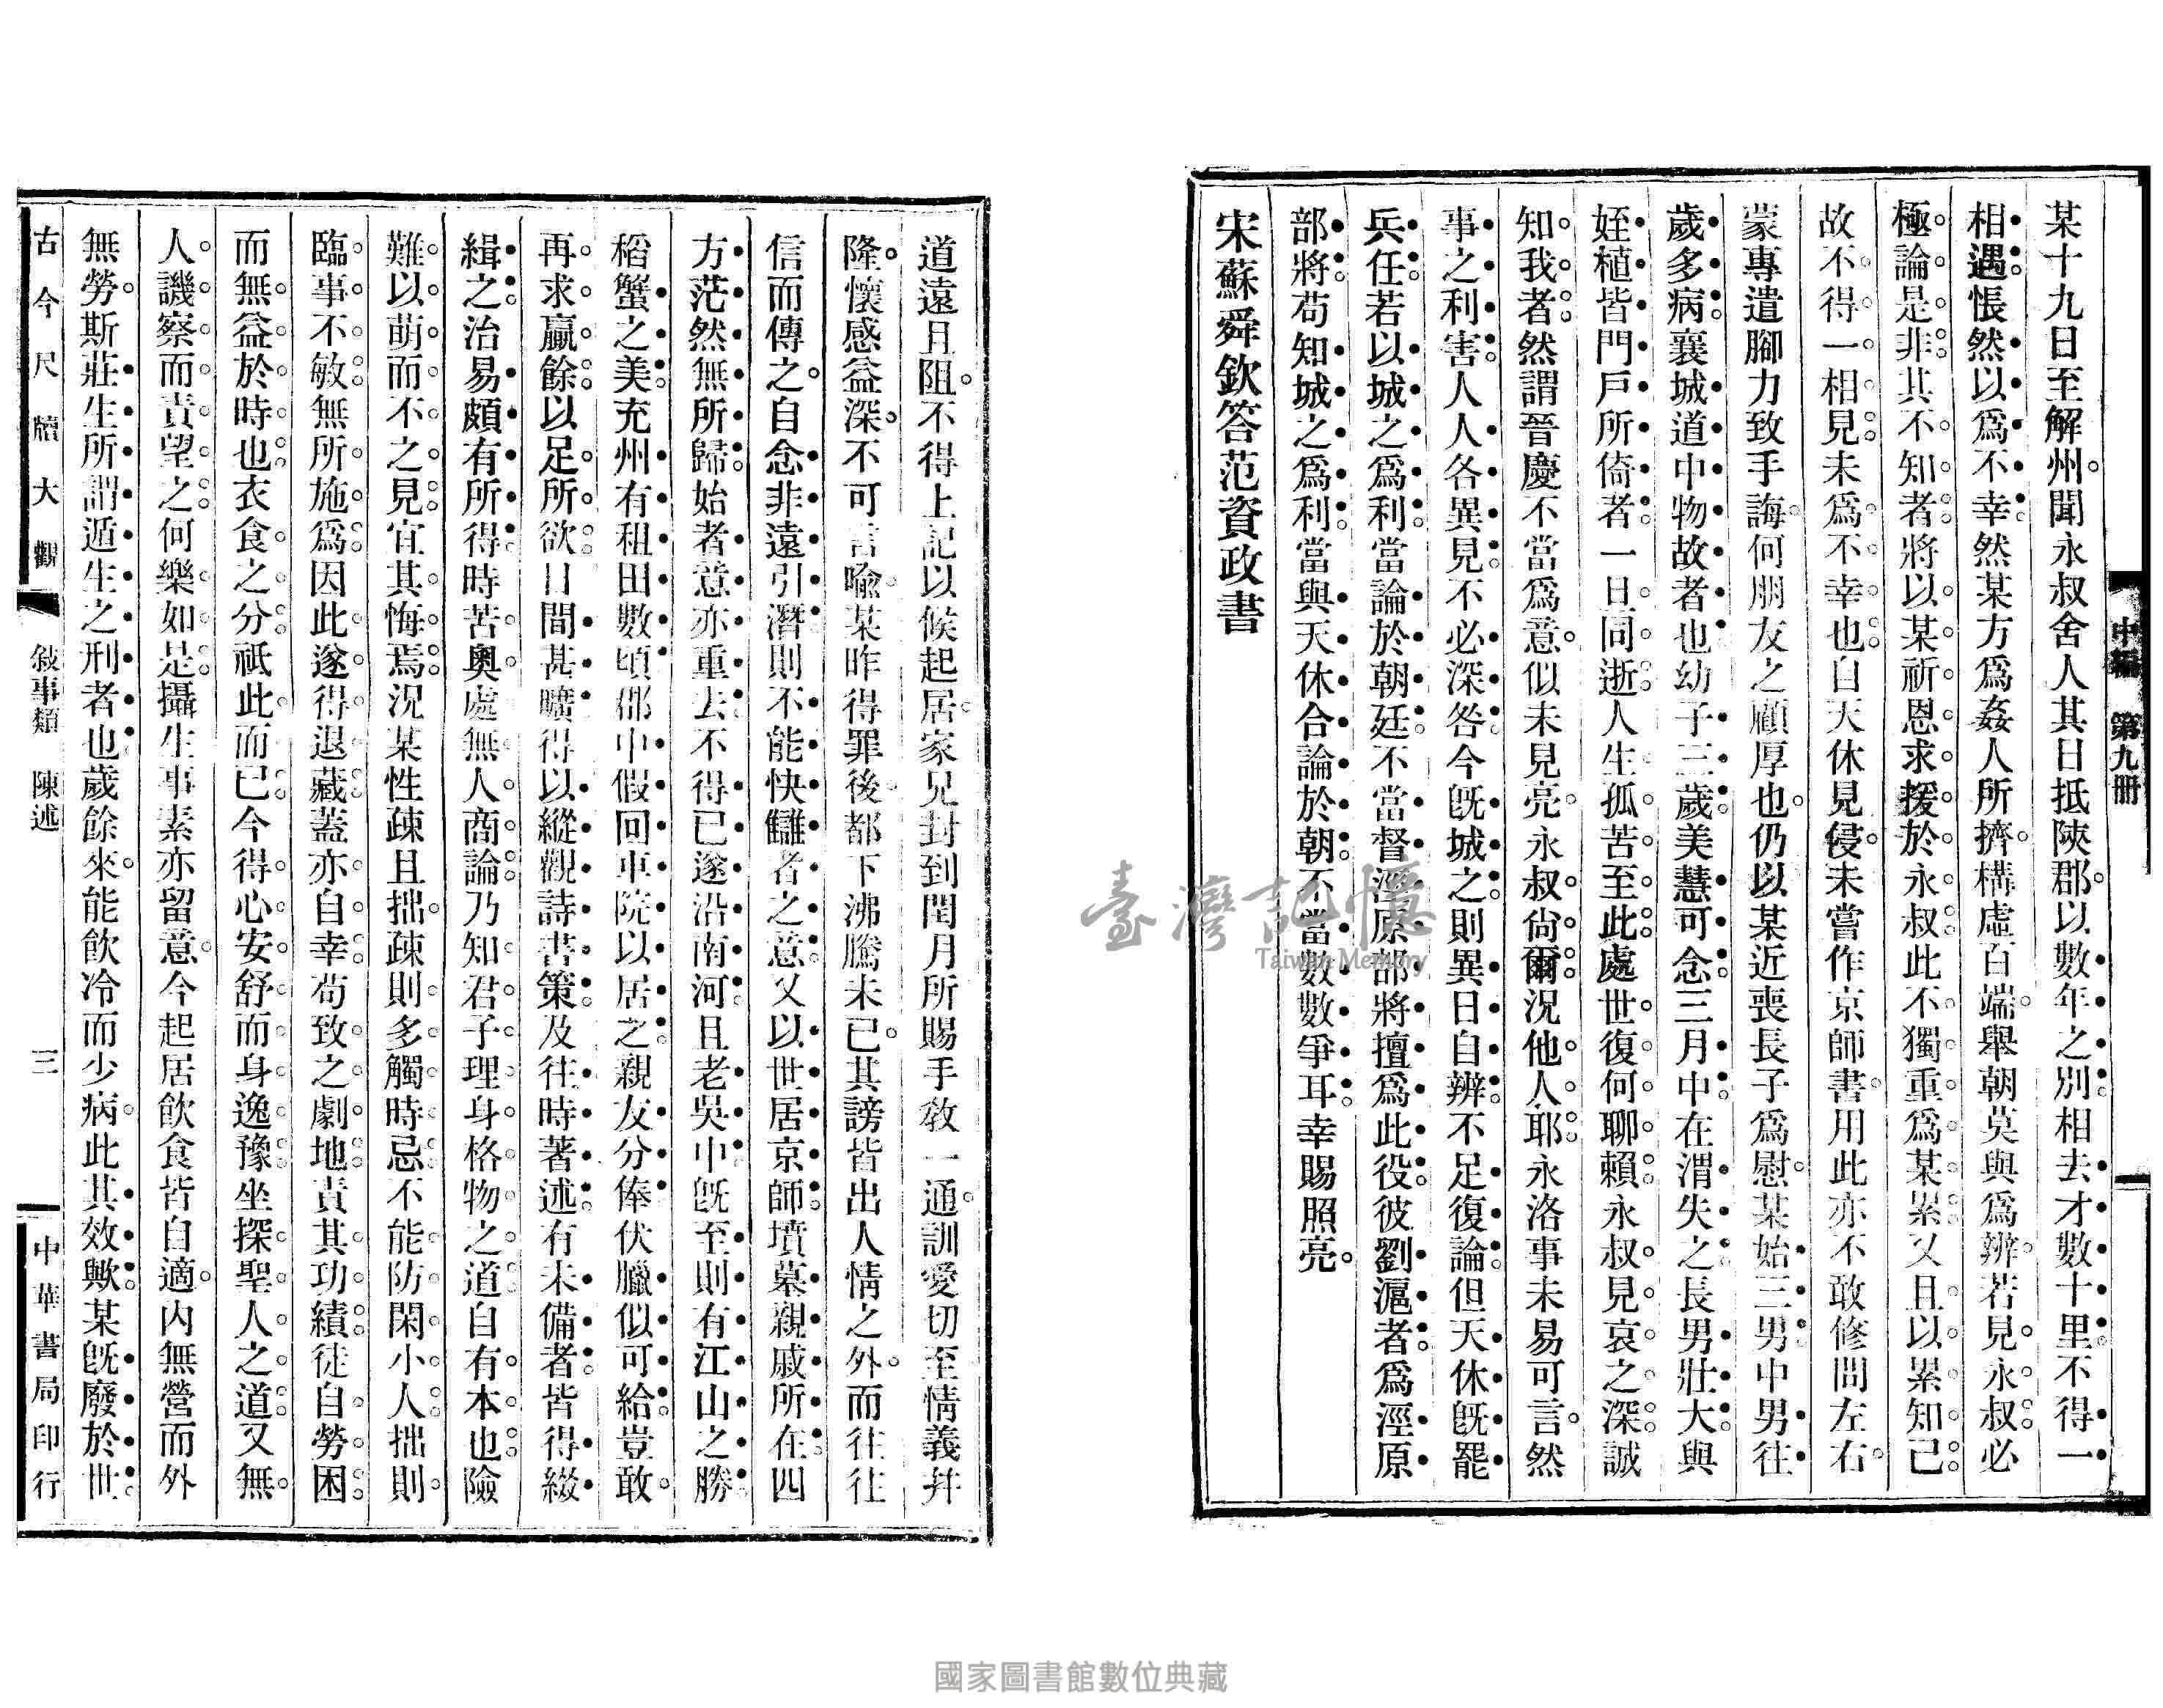 中編 第九冊
某十九日至解州。聞永叔舍人其日抵陝郡。以數年之別相去才數十里不得一
相遇悵然以爲不幸然某方爲姦人所擠。構虛百端。舉朝莫與爲辨。若見永叔必
極論是非其不知者將以某祈恩求援於永叔此不獨重爲某累又且以累知己
故不得一相見未爲不幸也自天休見侵。未嘗作京師書。用此亦不敢修問左右。
蒙專遣腳力致手誨。何朋友之顧厚也。仍以某近喪長子爲慰。某始三男中男往
歲多病襄城道中物故者也幼子三歲美慧可念三月中在渭失之長男壯大與
姪植皆門戶所倚者一日同逝人生孤苦至此處世復何聊賴永叔見哀之深誠
知我者然謂晉慶不當爲意。似未見亮。永叔尙爾況他人耶永洛事未易可言。然
事之利害人人各異見不必深咎今旣城之則異日自辨不足復論但天休旣罷
兵任若以城之爲利當論於朝廷不當督涇原部將擅爲此役彼劉滬者爲涇原
部將苟知城之爲利當與天休合論於朝不當數數爭耳幸賜照亮。
宋蘇舜欽答范資政書
道遠月阻。不得上記以候起居。家兄封到閏月所賜手敎一通。訓愛切至情義幷
隆。懷感益深。不可言喩。某昨得罪後。都下沸騰未已。其謗皆出人情之外。而往往
信而傳之。自念非遠引潛則不能快讎者之意又以世居京師墳墓親戚所在四
方茫然無所歸始者意亦重去不得已遂沿南河且老吳中旣至則有江山之勝
稻蟹之美充州有租田數頃郡中假回車院以居之親友分俸伏臘似可給豈敢。
再求贏餘以足所欲日閒甚曠得以縱觀詩書策及往時著述有未備者皆得綴
緝之治易頗有所得時苦奧處無人商論乃知君子理身格物之道自有本也險
難以萌而不之見宜其悔焉況某性疎且拙疎則多觸時忌不能防閑小人拙則
臨事不敏無所施爲因此遂得退藏蓋亦自幸苟致之劇地責其功績徒自勞困
而無益於時也衣食之分祇此而已今得心安舒而身逸豫坐探聖人之道又無。
人譏察而責望之何樂如是攝生事素亦留意。今起居飮食皆自適。內無營而外
無勞斯莊生所謂遁生之刑者也歲餘來能飮冷而少病此其效歟某旣廢於世
古今尺牘大觀 敍事類 陳述 三 中華書局印行
臺灣記憶
Taiwan Memory
國家圖書館數位典藏